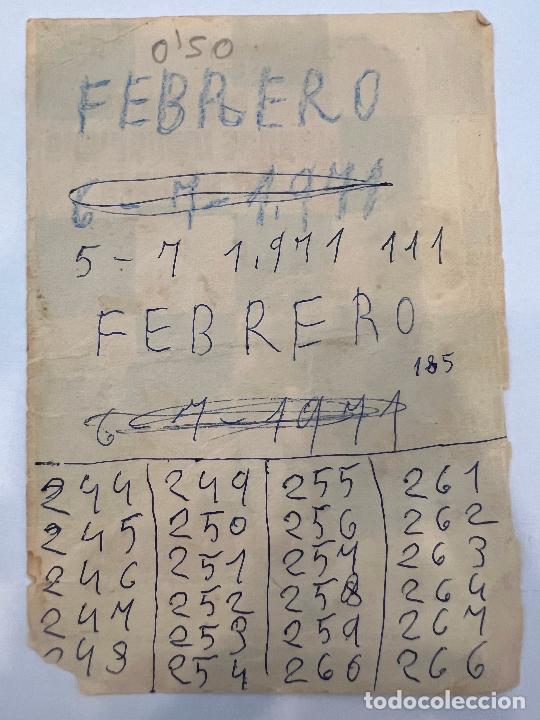 0'50
FEBRERO
6-7-1,971
5-7 1,971 111
FEBRERO
185
6-7-1971
244 249 255 261
245 250 256 262
246 251 257 263
247 252 258 264
248 253 259 267
254 260 266
todocoleccion.net